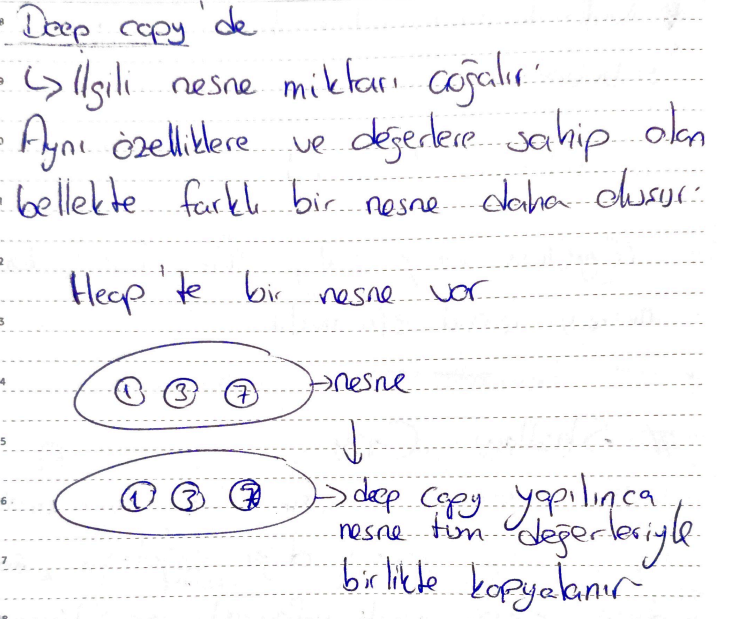 Deep copy'de
↳ İlgili nesne miktarı çoğalır.
Aynı özelliklere ve değerlere sahip olan
bellekte farklı bir nesne daha oluşur.
Heap'te bir nesne var
1 3 7 → nesne
↓
1 3 7 → deep copy yapılınca,
nesne tüm değerleriyle
birlikte kopyalanır